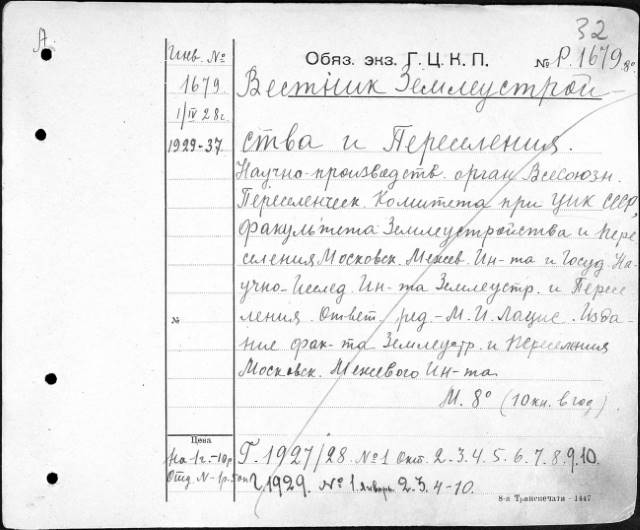 32
А.
Инв. №
Обяз. экз. Г. Ц. К. П.
№ Р. 1679 8°
1679
1/IV 28г.
1929-37
Вестник Землеустрой-
ства и Переселения.
Научно-производств. орган Всесоюзн.
Переселенческ. Комитета при ЦИК СССР,
факультета Землеустройства и Пере
селения Московск. Межев. Ин-та и Госуд. На-
учно-Исслед. Ин-та Землеустр. и Пересе
ления. Ответ. ред.- М. И. Лацис. Изда-
ние фак-та Землеустр. и Переселения
Московск. Межевого Ин-та.
М. 8° (10 кн. в год)
№
Цена
На 1 г.-10р
Отд. N-1р.
Г. 1927/28. №1 Окт. 2. 3. 4. 5. 6. 7. 8. 9. 10.
Г. 1929. №1 Январь 2. 3. 4-10.
8-я Транспечати - 1447